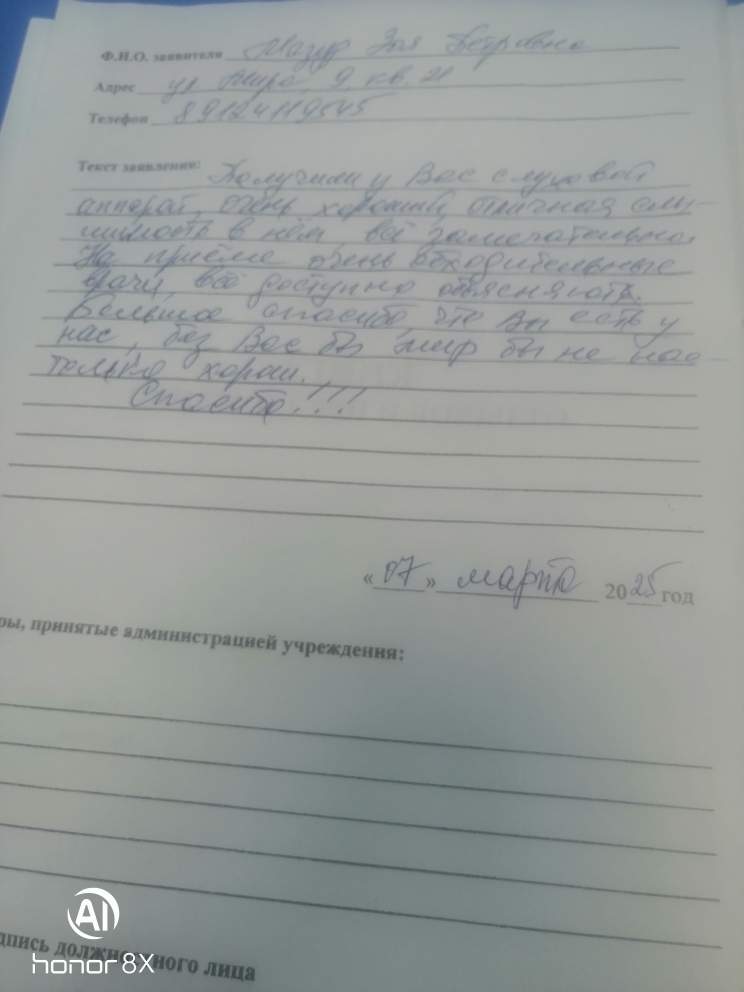 Ф.И.О. заявителя Мазур Зоя Петровна
Адрес ул Мира, 9 кв. 21
Телефон 89124119545
Текст заявления: Получили у Вас слуховой
аппарат, очень хороший, отличная слы-
шимость в нём, всё замечательно.
На приёме очень обходительные
врачи, всё доступно объясняют.
Большое спасибо, что Вы есть у
нас, без Вас бы мир бы не нас-
только хорош.
Спасибо!!!
«07» марта 2025 год
ры, принятые администрацией учреждения:
дпись должностного лица
AI
honor 8X